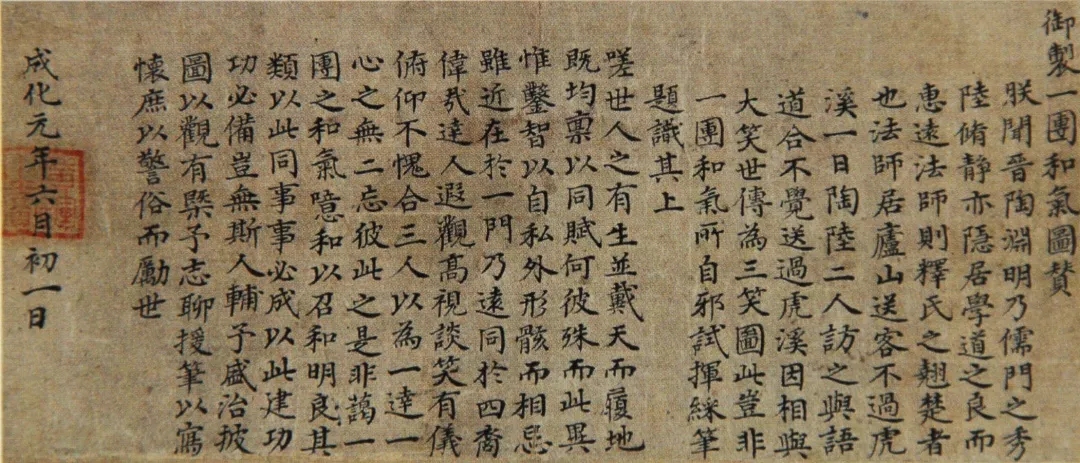 御製一團和氣圖賛
朕聞晉陶淵明乃儒門之秀
陸脩静亦隱居學道之良而
惠遠法師則釋氏之翹楚者
也法師居廬山送客不過虎
溪一日陶陸二人訪之與語
道合不覺送過虎溪因相與
大笑世傳為三笑圖此豈非
一團和氣所自邪試揮綵筆
題識其上
嗟世人之有生並戴天而履地
既均禀以同賦何彼殊而此異
惟鑿智以自私外形骸而相忌
雖近在於一門乃遠同於四裔
偉哉達人遐觀高視談笑有儀
俯仰不愧合三人以為一達一
心之無二忘彼此之是非藹一
團之和氣噫和以召和明良其
類以此同事事必成以此建功
功必備豈無斯人輔予盛治披
圖以觀有槩予志聊援筆以寫
懷庶以警俗而勵世
成化元年六月初一日